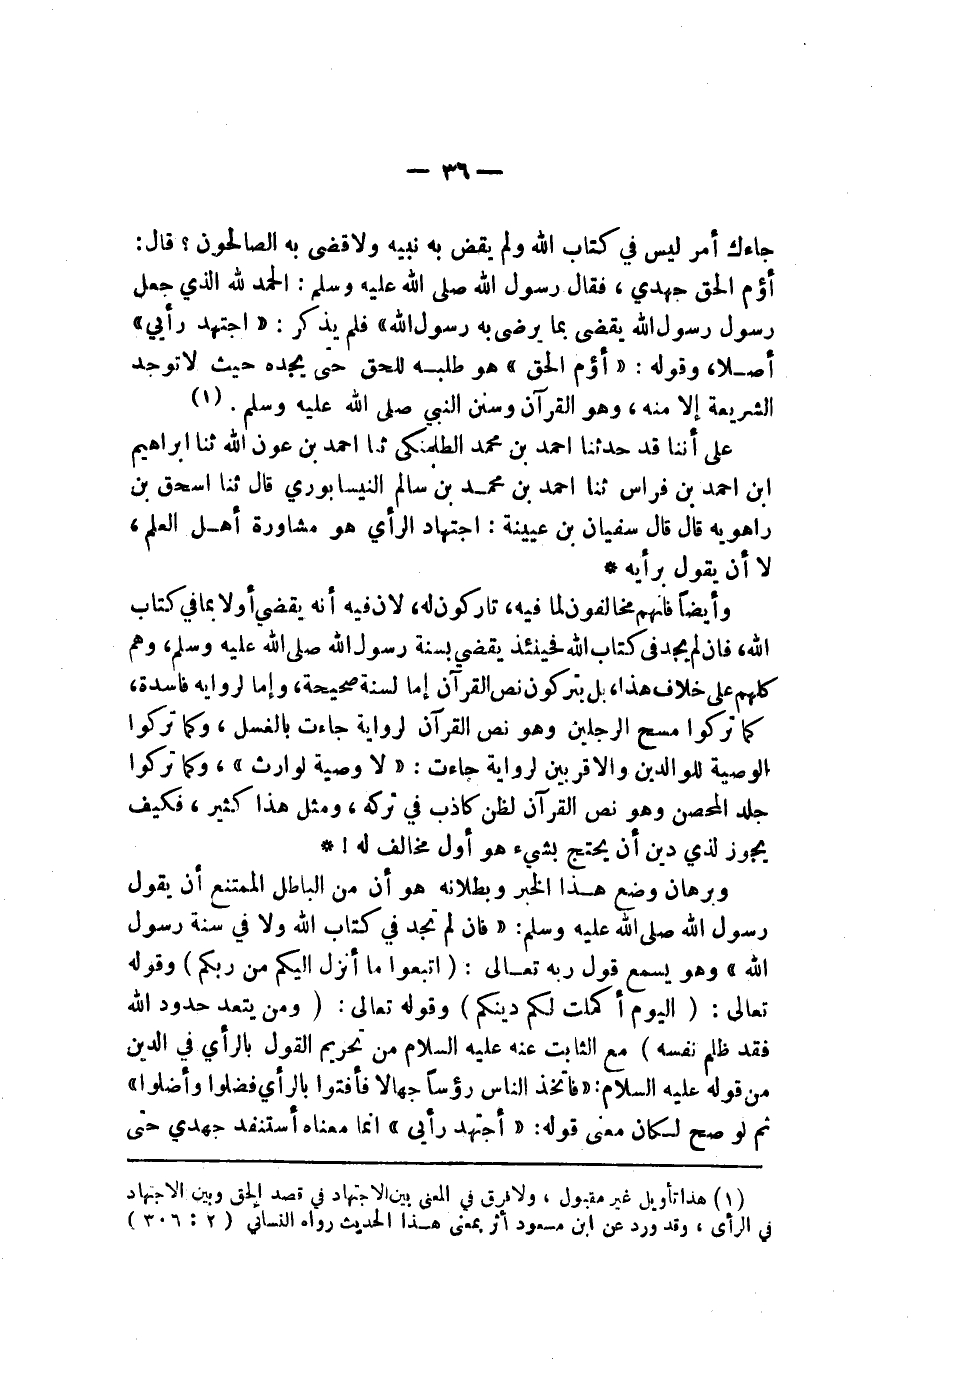 — ٣٦ —
جاءك أمر ليس في كتاب الله ولم يقض به نبيه ولاقضى به الصالحون ؟ قال:
أؤم الحق جهدي ، فقال رسول الله صلى الله عليه وسلم : الحمد لله الذي جعل
رسول رسول الله يقضى بما يرضى به رسول الله» فلم يذكر : « اجتهد رأيي»
أصــلا، وقوله : « أؤم الحق » هو طلبــه للحق حتى يجده حيث لاتوجد
الشريعة إلا منه ، وهو القرآن وسنن النبي صلى الله عليه وسلم . (١)
على أننا قد حدثنا احمد بن محمد الطلمنكي ثنا احمد بن عون الله ثنا ابراهيم
ابن احمد بن فراس ثنا احمد بن محمــد بن سالم النيسابوري قال ثنا اسحق بن
راهويه قال قال سفيان بن عيينة : اجتهاد الرأي هو مشاورة أهــل العلم ،
لا أن يقول برأيه *
وأيضاً فانهم مخالفون لما فيه، تاركون له، لان فيه أنه يقضي أولا بما في كتاب
الله، فان لم يجد فى كتاب الله فحينئذ يقضي بسنة رسول الله صلى الله عليه وسلم، وهم
كلهم على خلاف هذا، بل يتركون نص القرآن إما لسنة صحيحة، وإما لروايه فاسدة،
كما تركوا مسح الرجلين وهو نص القرآن لرواية جاءت بالغسل ، وكما تركوا
الوصية للوالدين والاقربين لرواية جاءت : « لا وصية لوارث » ، وكما تركوا
جلد المحصن وهو نص القرآن لظن كاذب في تركه ، ومثل هذا كثير ، فكيف
يجوز لذي دين أن يحتج بشيء هو أول مخالف له ! *
وبرهان وضع هــذا الخبر وبطلانه هو أن من الباطل الممتنع أن يقول
رسول الله صلى الله عليه وسلم: « فان لم تجد في كتاب الله ولا في سنة رسول
الله » وهو يسمع قول ربه تعــالى : ( اتبعوا ما أنزل اليكم من ربكم ) وقوله
تعالى : ( اليوم أكملت لكم دينكم ) وقوله تعالى : ( ومن يتعد حدود الله
فقد ظلم نفسه ) مع الثابت عنه عليه السلام من تحريم القول بالرأي في الدين
من قوله عليه السلام: «فاتخذ الناس رؤساً جهالا فأفتوا بالرأي فضلوا وأضلوا»
ثم لو صح لــكان معنى قوله: « أجتهد رأيي » انما معناه أستنفد جهدي حتى
(١) هذا تأويل غير مقبول ، ولافرق في المعنى بين الاجتهاد في قصد الحق وبين الاجتهاد
في الرأى ، وقد ورد عن ابن مسعود أثر بمعنى هــذا الحديث رواه النسائي ( ٢ : ٣٠٦ )